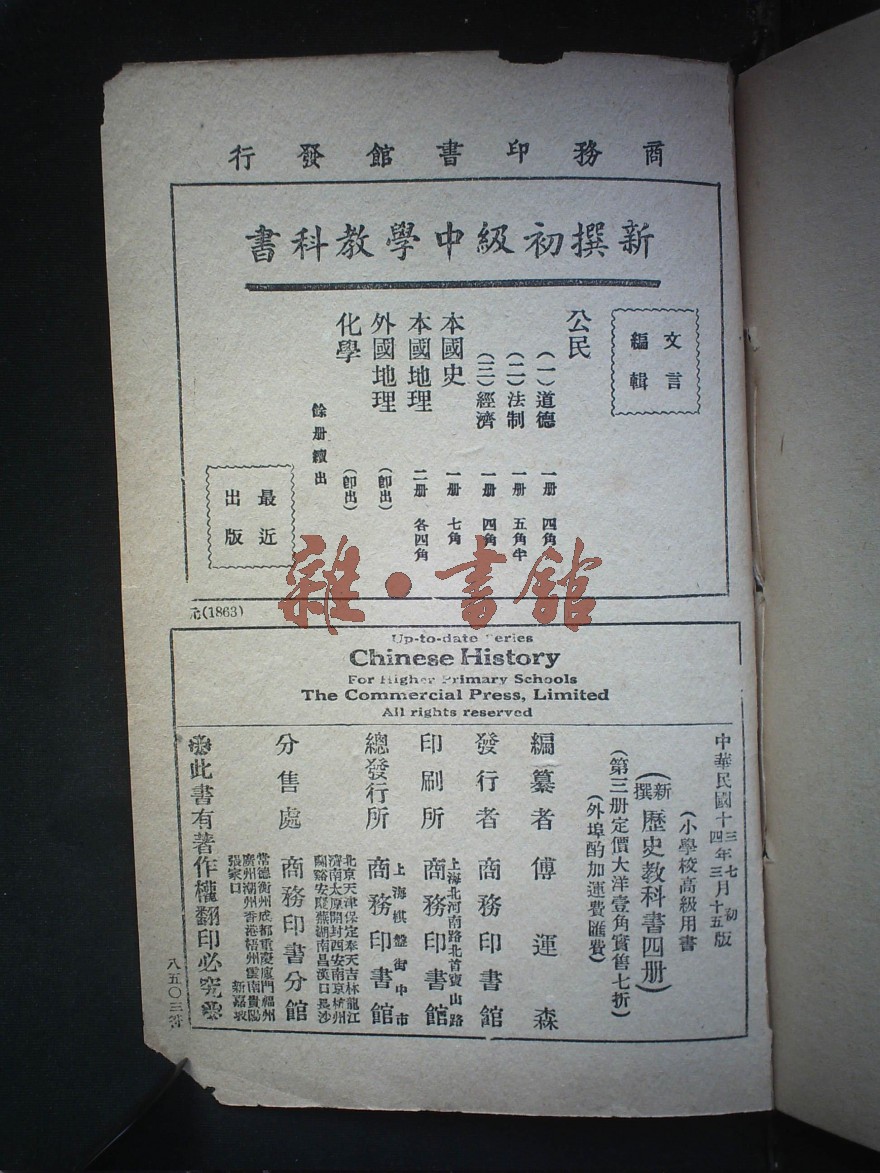 商務印書館發行
新撰初級中學教科書
文言
編輯
公民
(一)道德 一册 四角
(二)法制 一册 五角半
(三)經濟 一册 四角
本國史 一册 七角
本國地理 二册 各四角
外國地理 (卽出)
化學 (卽出)
餘册續出
最近
出版
元(1863)
雜·書館
Up-to-date Series
Chinese History
For Higher Primary Schools
The Commercial Press, Limited
All rights reserved
中華民國十三年七月初版
十四年三月十五版
(小學校高級用書)
(新撰歷史教科書四册)
(第三册定價大洋壹角實售七折)
(外埠酌加運費匯費)
編纂者 傅運森
發行者 商務印書館
上海北河南路北首寶山路
印刷所 商務印書館
上海棋盤街中市
總發行所 商務印書館
北京天津保定奉天吉林龍江
濟南太原開封西安南京杭州
蘭谿安慶蕪湖南昌漢口長沙
分售處 商務印書分館
常德衡州成都重慶廈門福州
廣州潮州香港梧州雲南貴陽
張家口 新嘉坡
此書有著作權翻印必究
八五〇三